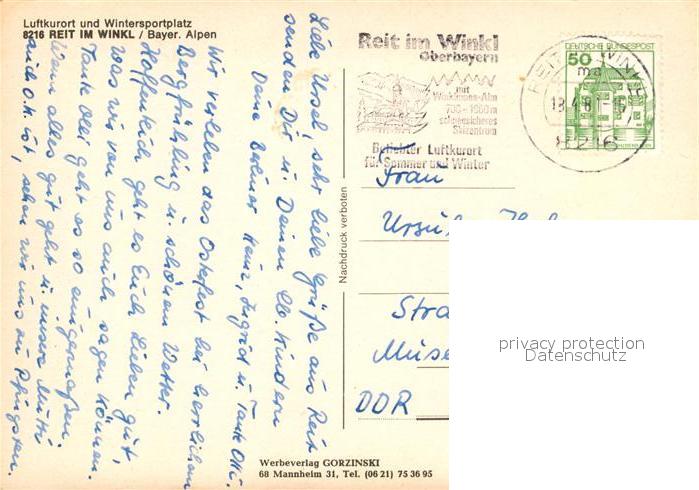 Luftkurort und Wintersportplatz
8216 REIT IM WINKL / Bayer. Alpen
Liebe Ursel, sehr liebe Grüße aus Reit
senden Dir u. Deinen lb. Kindern
Deine Heinz, Ingrid u. Tante Olli.
Wir erleben das Osterfest bei herrlichem
Bergfrühling u. schönem Wetter.
Hoffentlich geht es Euch Lieben gut,
was wir von uns auch sagen können.
Tante Olli geht es so einigermaßen.
Wenn alles gut geht u. unsere Mutti
auch o.k. ist, sehen wir uns zu Pfingsten.
Nachdruck verboten
Werbeverlag GORZINSKI
68 Mannheim 31, Tel. (06 21) 75 36 95
Reit im Winkl
Oberbayern
mit
Winklmoos-Alm
700-1800m
schneesicheres
Skizentrum
Beliebter Luftkurort
für Sommer und Winter
DEUTSCHE BUNDESPOST
50
REIT IM WINKL
ma
18.4.81-15
8216
Frau
DDR
privacy protection
Datenschutz